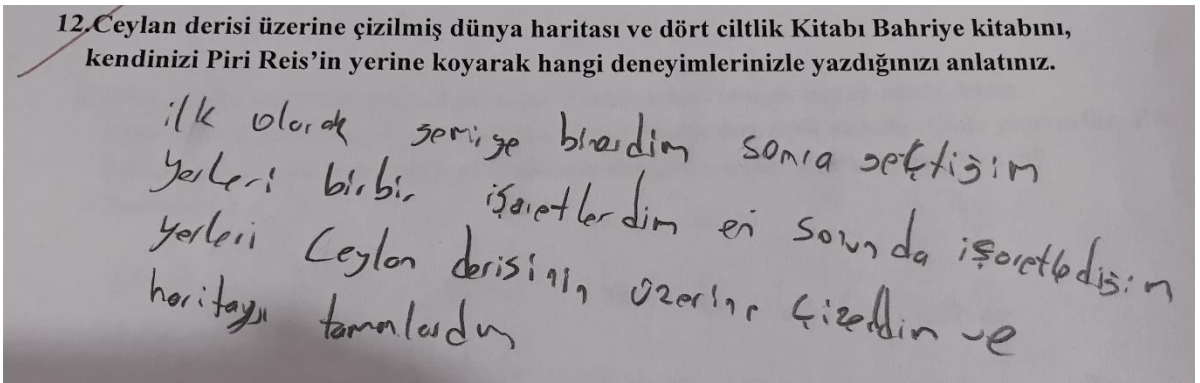 12.Ceylan derisi üzerine çizilmiş dünya haritası ve dört ciltlik Kitabı Bahriye kitabını,
kendinizi Piri Reis'in yerine koyarak hangi deneyimlerinizle yazdığınızı anlatınız.
ilk olarak gemiye binerdim sonra geçtiğim
yerleri birbir işaretlerdim en sonunda işaretlediğim
yerleri Ceylan derisinin üzerine çizerdim ve
haritayı tamamlardım